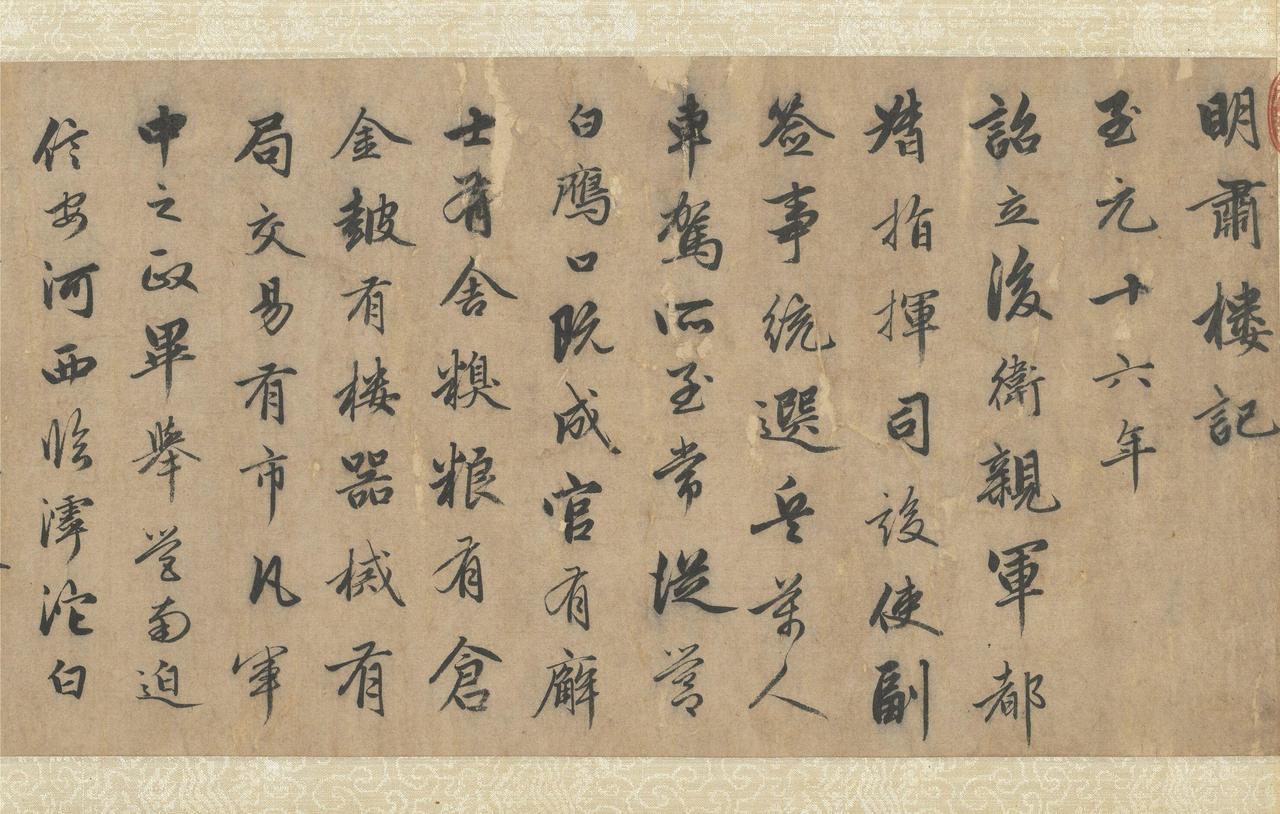 明肅樓記
至元十六年
詔立後衛親軍都
揩指揮司設使副
簽事統選兵萬人
車駕所至常從營
白鴈口既成官有廨
士有舍糗粮有倉
金鼓有楼器械有
局交易有市凡軍
中之政畢舉營南迫
信安河西臨滹沱白